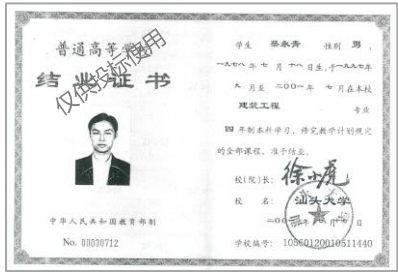 普通高等学
结业证书
仅供投标使用
中华人民共和国教育部制
No. 00030712
学生 蔡永青 性别 男,
一九七八年 七 月 十八 日生,于一九九七年
九 月至 二〇〇一 年 七 月在本校
建筑工程 专业
四 年制本科学习,修完教学计划规定
的全部课程,准予结业。
校(院)长: 徐小虎
校 名: 汕头大学
二〇〇
学校编号: 10560120010511440